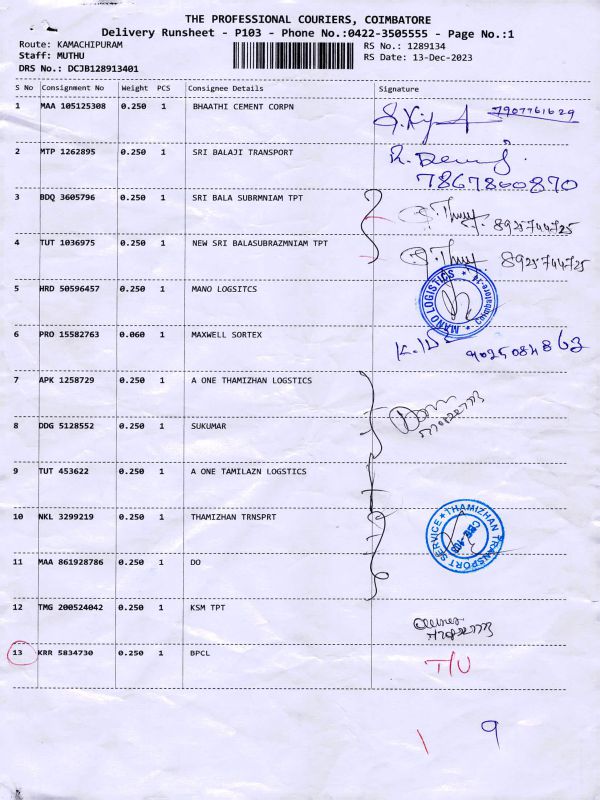 THE PROFESSIONAL COURIERS, COIMBATORE
Delivery Runsheet - P103 - Phone No.:0422-3505555 - Page No.:1
Route: KAMACHIPURAM
Staff: MUTHU
DRS No.: DCJB128913401
RS No.: 1289134
RS Date: 13-Dec-2023
S No Consignment No Weight PCS Consignee Details Signature
1 MAA 105125308 0.250 1 BHAATHI CEMENT CORPN 7907761629
2 MTP 1262895 0.250 1 SRI BALAJI TRANSPORT
7867860870
3 BDQ 3605796 0.250 1 SRI BALA SUBRMNIAM TPT 8925744725
4 TUT 1036975 0.250 1 NEW SRI BALASUBRAZMNIAM TPT 8925744725
5 HRD 50596457 0.250 1 MANO LOGSITCS
6 PRO 15582763 0.060 1 MAXWELL SORTEX 9025084863
7 APK 1258729 0.250 1 A ONE THAMIZHAN LOGSTICS
8 DDG 5128552 0.250 1 SUKUMAR
9 TUT 453622 0.250 1 A ONE TAMILAZN LOGSTICS
10 NKL 3299219 0.250 1 THAMIZHAN TRNSPRT
THAMIZHAN TRANSPORT SERVICE
11 MAA 861928786 0.250 1 DO
12 TMG 200524042 0.250 1 KSM TPT
13 KRR 5834730 0.250 1 BPCL T/U
9